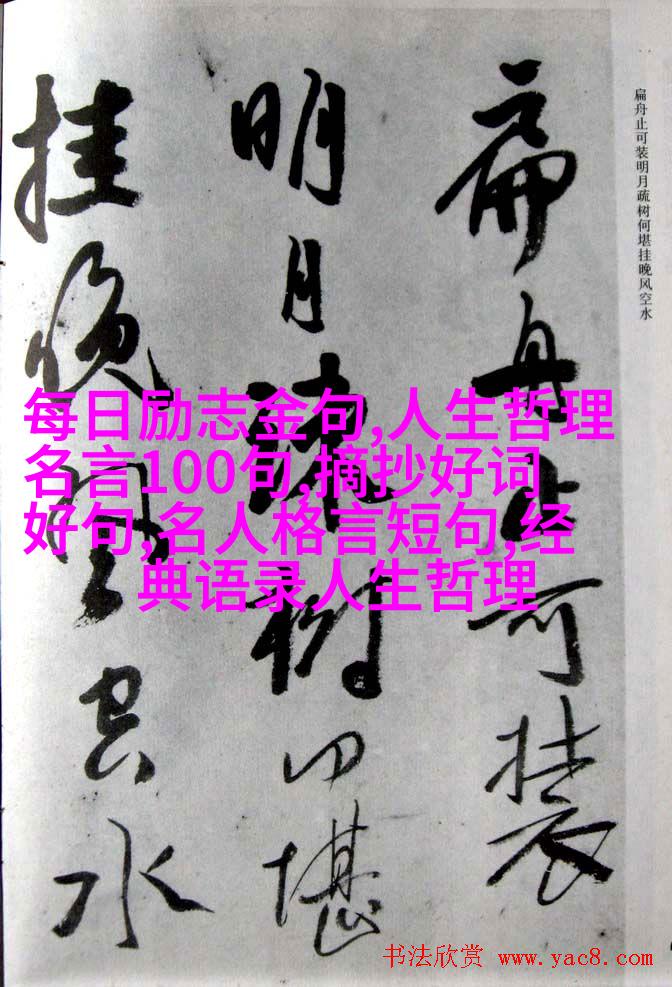 扁舟止可装
明月疏树何堪
挂晚风空水
扁舟止可装明月疏树何堪挂晚风空水
每日励志金句,人生哲理
名言100句,摘抄好词
好句,名人格言短句,经
典语录人生哲理
书法欣赏 www.yac8.com